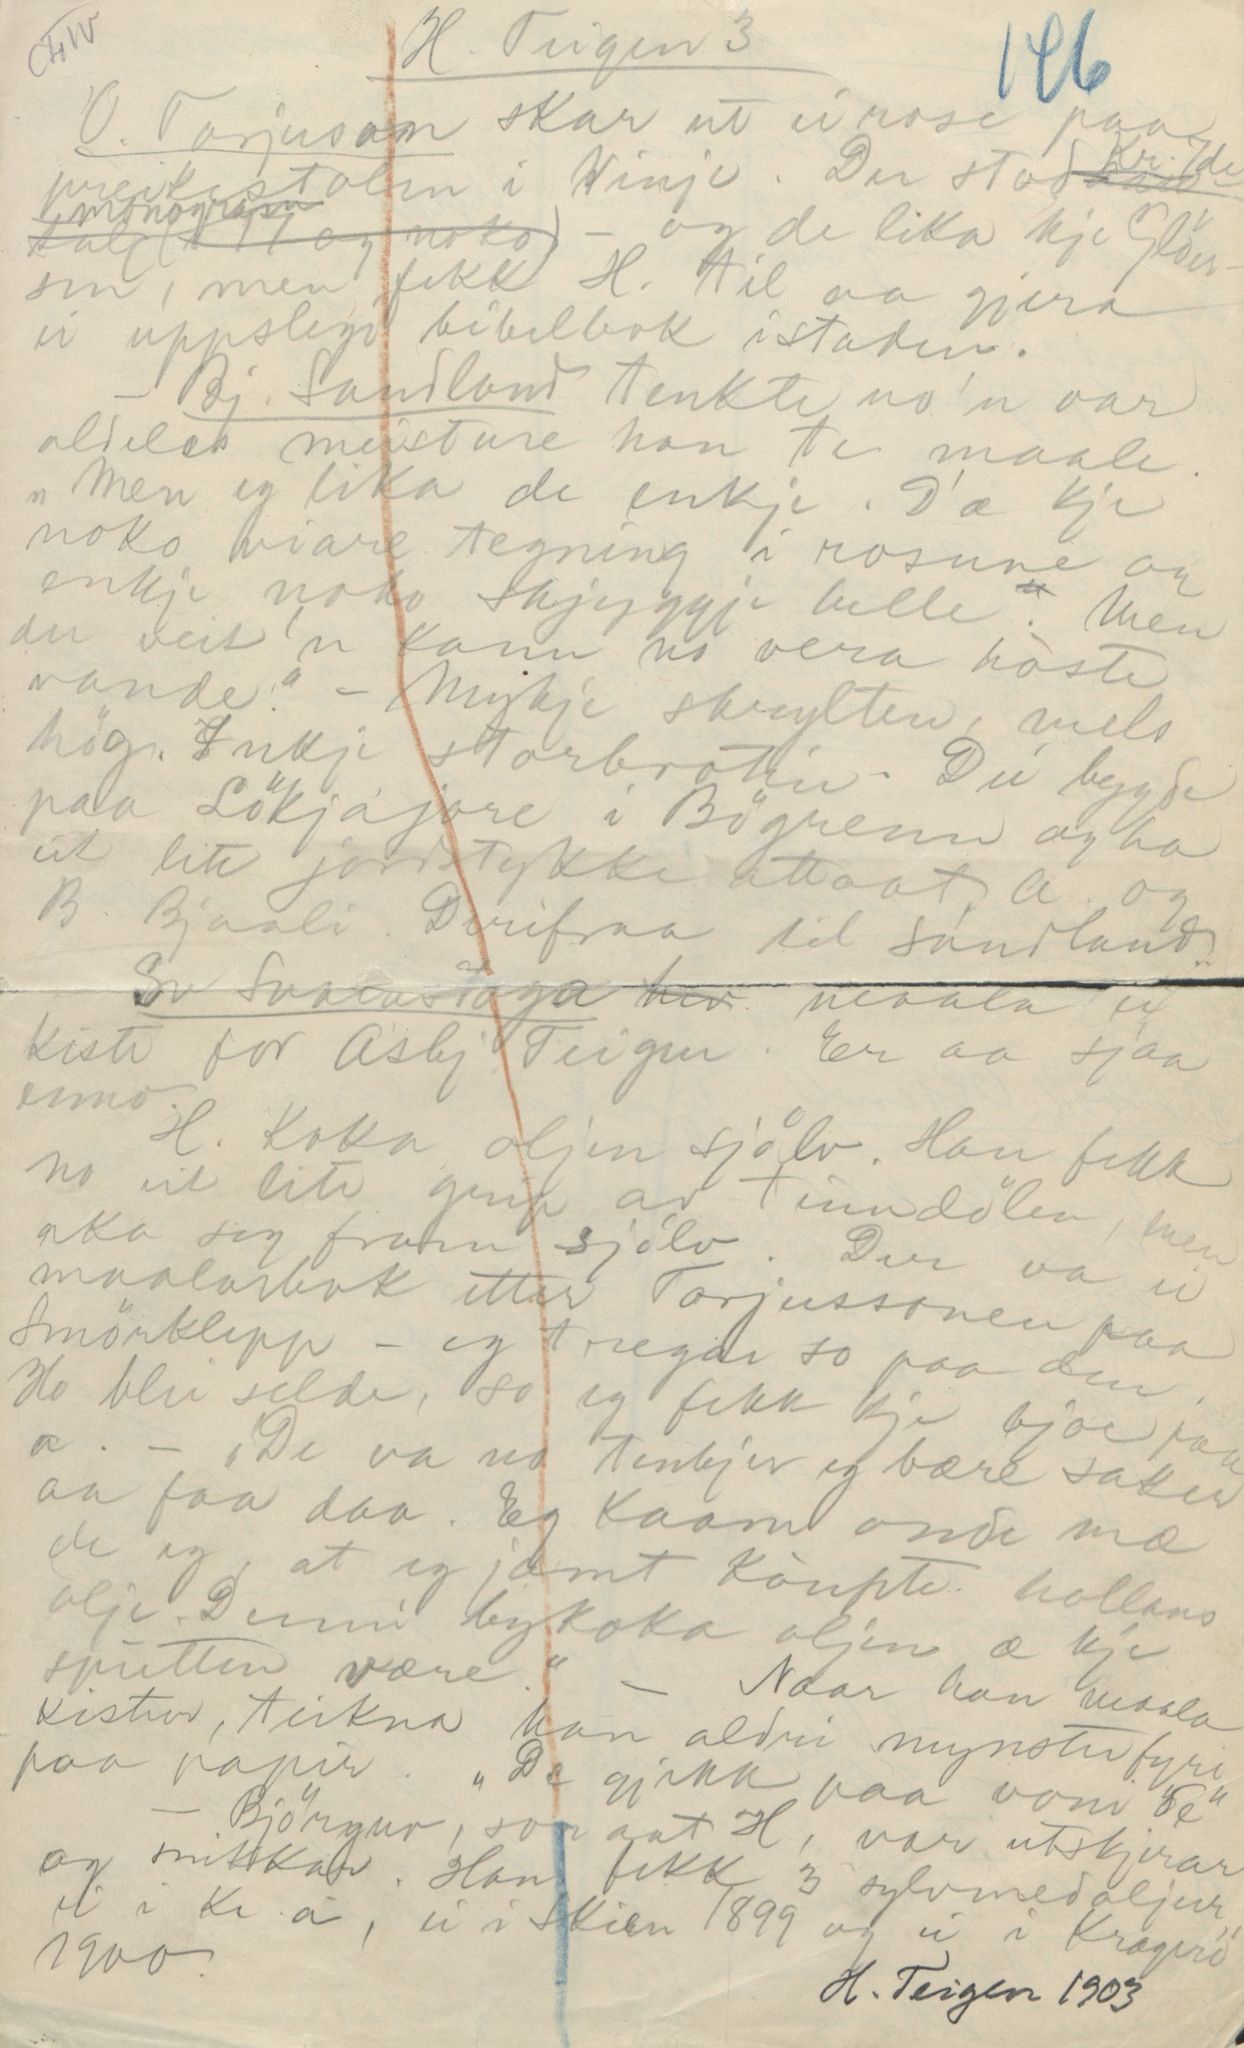 H. Teigen 3
146
O. Tarjusson skar ut ei rose paa
preikestolen i Vinje. Der stod Kr. 7de
monogram
tale (k 77 og noko) – og de lika kje Glöer-
sen, men fekk H. til aa gjera
ei uppslegi bibelbok istaden.
– Bj. Sandland tenkte no 'n var
aldeles meisture han te maale.
„Men eg lika de enkje. D'æ kje
noko viare tegning i rosune og
enkje noko skjeyggje helle. Men
du veit 'n kann no vera hóste
vande." – Mykje skrylten, mels
hög. Inkje storbrotin. Dei bygde
paa Lökjajore i Bögrenn og ha
eit lite jordstykke attaat, A. og
B. Bjaali. Derifraa til Sandland.
Sv Svalastoga hev maala ei
kiste for Asbj Teigen. Er aa sjaa
enno.
H. koka oljen sjölv. Han fekk
no eit lite grup av Tinndölen, men
aka seg fram sjölv. Der va ei
maalarbok etter Tarjussonen paa
Smörklepp – eg tregar so paa den.
Ho blei selde, so eg fekk kje bjoe paa
a. – „De va no tenkjer eg bære saker
aa faa daa. Eg kaam onde mæ
de eg, at eg jamt köupte hollans
olje. Denni bykoka oljen æ kje
spütten være." – Naar han maala
kistur, teikna han aldri mynster fyri
paa papir. „De gjekk paa vom de"
– Björguv, son aat H, var utskjerar
og snikkar. Han fekk 3 sylvmedaljur,
ei i Kr.a, ei i Skien 1899 og ei i Kragerö
1900.
H. Teigen 1903